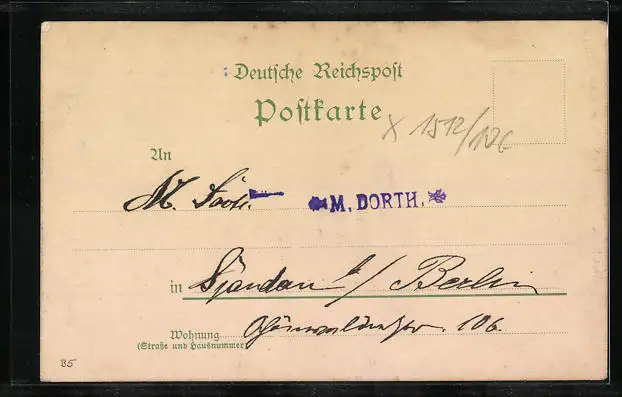 Deutsche Reichspost
Postkarte
x 1512/126
An
M. M. DORTH.
in Spandau b/ Berlin
Wohnung 106.
(Straße und Hausnummer)
85